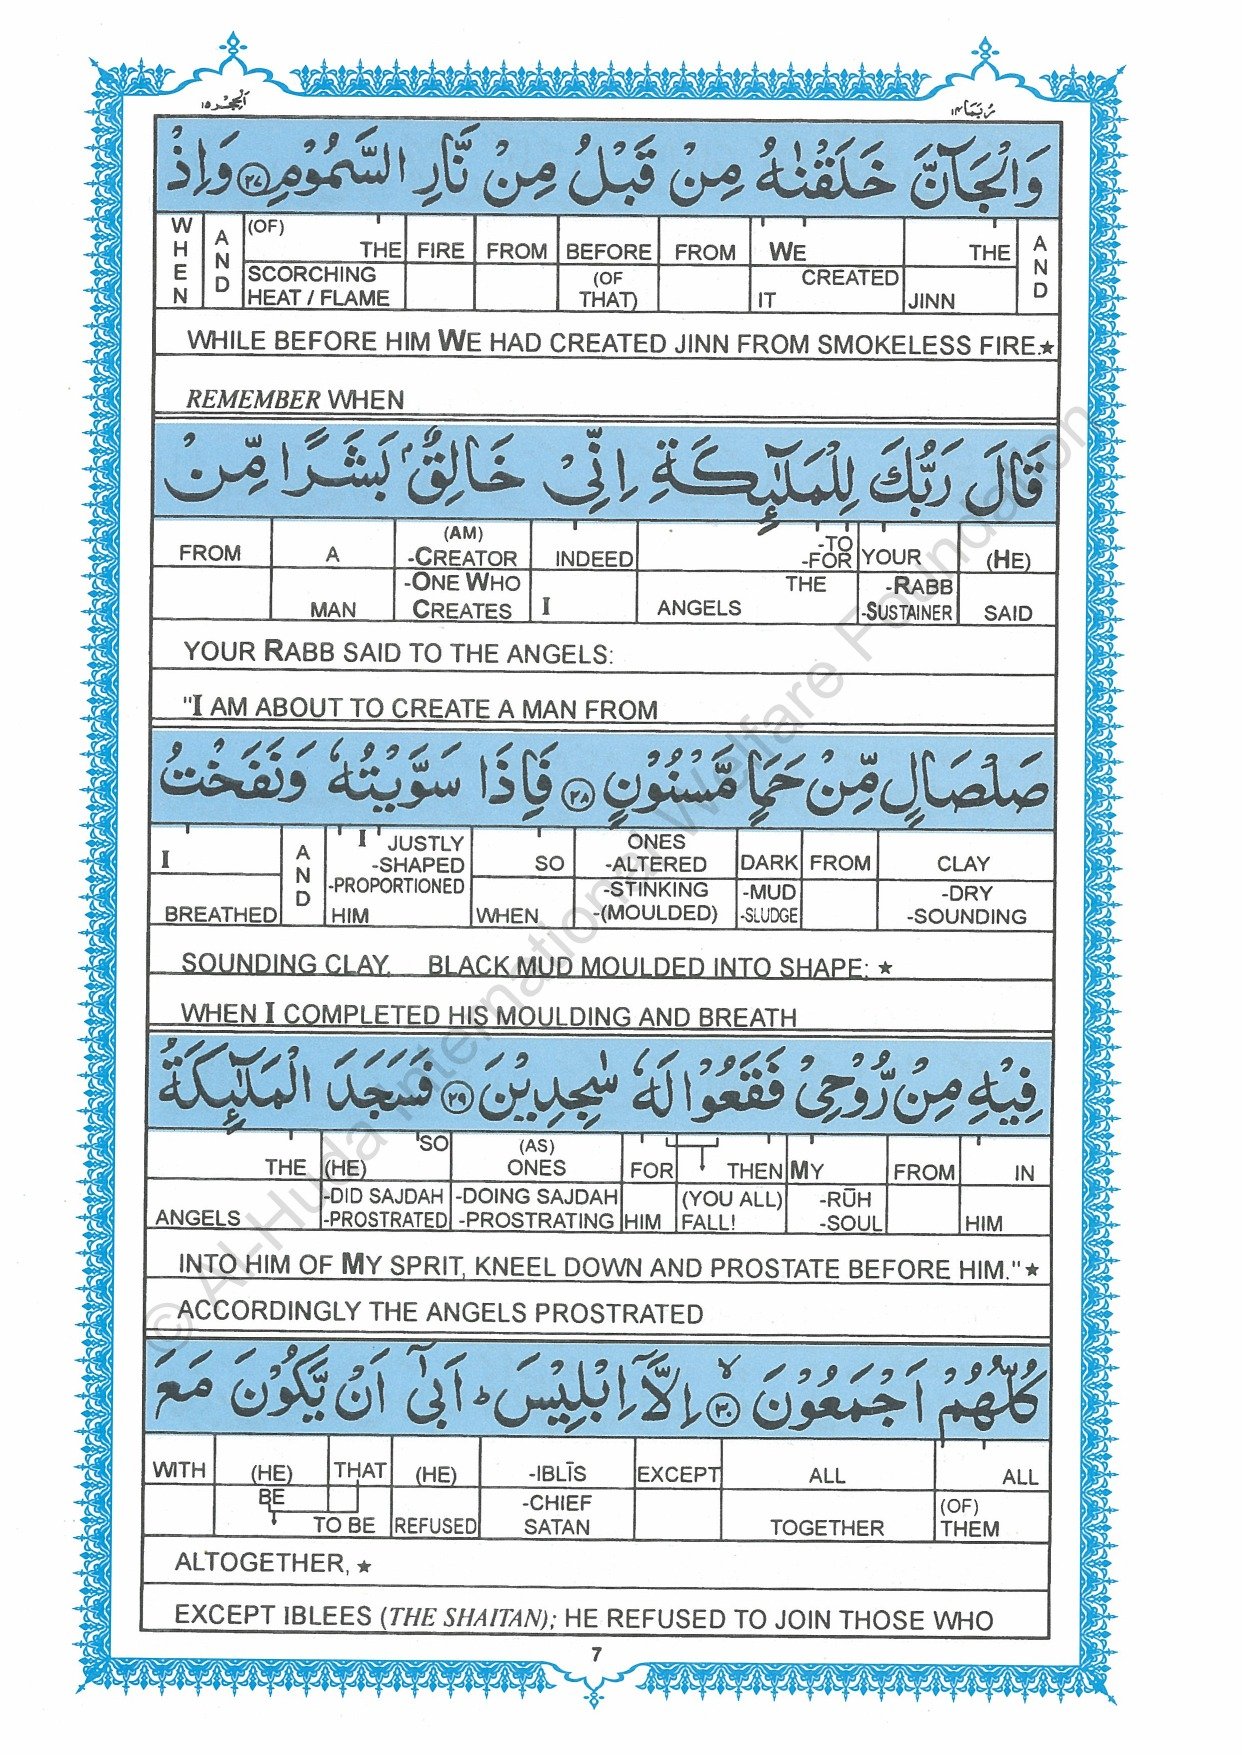 الحجر ١٥
ربما ١٤
وَالْجَآنَّ خَلَقْنٰهُ مِنْ قَبْلُ مِنْ نَّارِ السَّمُوْمِ ﴿٢٧﴾ وَاِذْ
WHEN AND (OF) THE FIRE FROM BEFORE FROM WE THE AND
SCORCHING HEAT / FLAME (OF THAT) CREATED IT JINN
WHILE BEFORE HIM WE HAD CREATED JINN FROM SMOKELESS FIRE.★
REMEMBER WHEN
قَالَ رَبُّكَ لِلْمَلٰٓئِكَةِ اِنِّىْ خَالِقٌۢ بَشَرًا مِّنْ
FROM A (AM) -CREATOR INDEED -TO -FOR YOUR (HE)
MAN -ONE WHO CREATES I ANGELS THE -RABB -SUSTAINER SAID
YOUR RABB SAID TO THE ANGELS:
"I AM ABOUT TO CREATE A MAN FROM
صَلْصَالٍ مِّنْ حَمَاٍ مَّسْنُوْنٍ ﴿٢٨﴾ فَاِذَا سَوَّيْتُهٗ وَنَفَخْتُ
I AND I JUSTLY -SHAPED SO ONES -ALTERED DARK FROM CLAY
BREATHED -PROPORTIONED HIM WHEN -STINKING -(MOULDED) -MUD -SLUDGE -DRY -SOUNDING
SOUNDING CLAY, BLACK MUD MOULDED INTO SHAPE: ★
WHEN I COMPLETED HIS MOULDING AND BREATH
فِيْهِ مِنْ رُّوْحِىْ فَقَعُوْا لَهٗ سٰجِدِيْنَ ﴿٢٩﴾ فَسَجَدَ الْمَلٰٓئِكَةُ
THE SO (HE) (AS) ONES FOR THEN MY FROM IN
ANGELS -DID SAJDAH -PROSTRATED -DOING SAJDAH -PROSTRATING HIM (YOU ALL) FALL! -RŪH -SOUL HIM
INTO HIM OF MY SPRIT, KNEEL DOWN AND PROSTATE BEFORE HIM."★
ACCORDINGLY THE ANGELS PROSTRATED
كُلُّهُمْ اَجْمَعُوْنَ ﴿٣٠﴾ لا اِلَّآ اِبْلِيْسَ ؕ اَبٰٓى اَنْ يَّكُوْنَ مَعَ
WITH (HE) THAT (HE) -IBLĪS EXCEPT ALL ALL
BE TO BE REFUSED -CHIEF SATAN TOGETHER (OF) THEM
ALTOGETHER, ★
EXCEPT IBLEES (THE SHAITAN); HE REFUSED TO JOIN THOSE WHO
7
© Al-Huda International Welfare Foundation